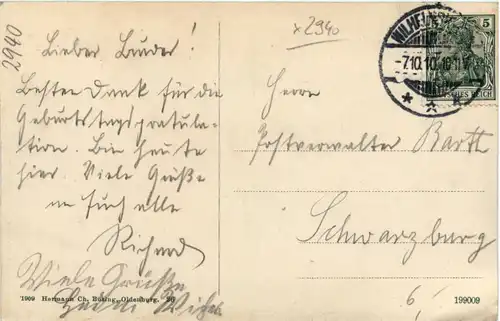 2940
x 2940
Lieber Bruder!
Besten Dank für die
Geburtstagsgratula-
tion. Bin heute
hier. Viele Grüße
an Euch alle
Richard
Viele Grüße
Herrn
Postverwalter Barth
Schwarzburg
6,
WILHELMS
-7.10.10. 10-11V
5
1909 Hermann Ch. Büsing, Oldenburg.
199009